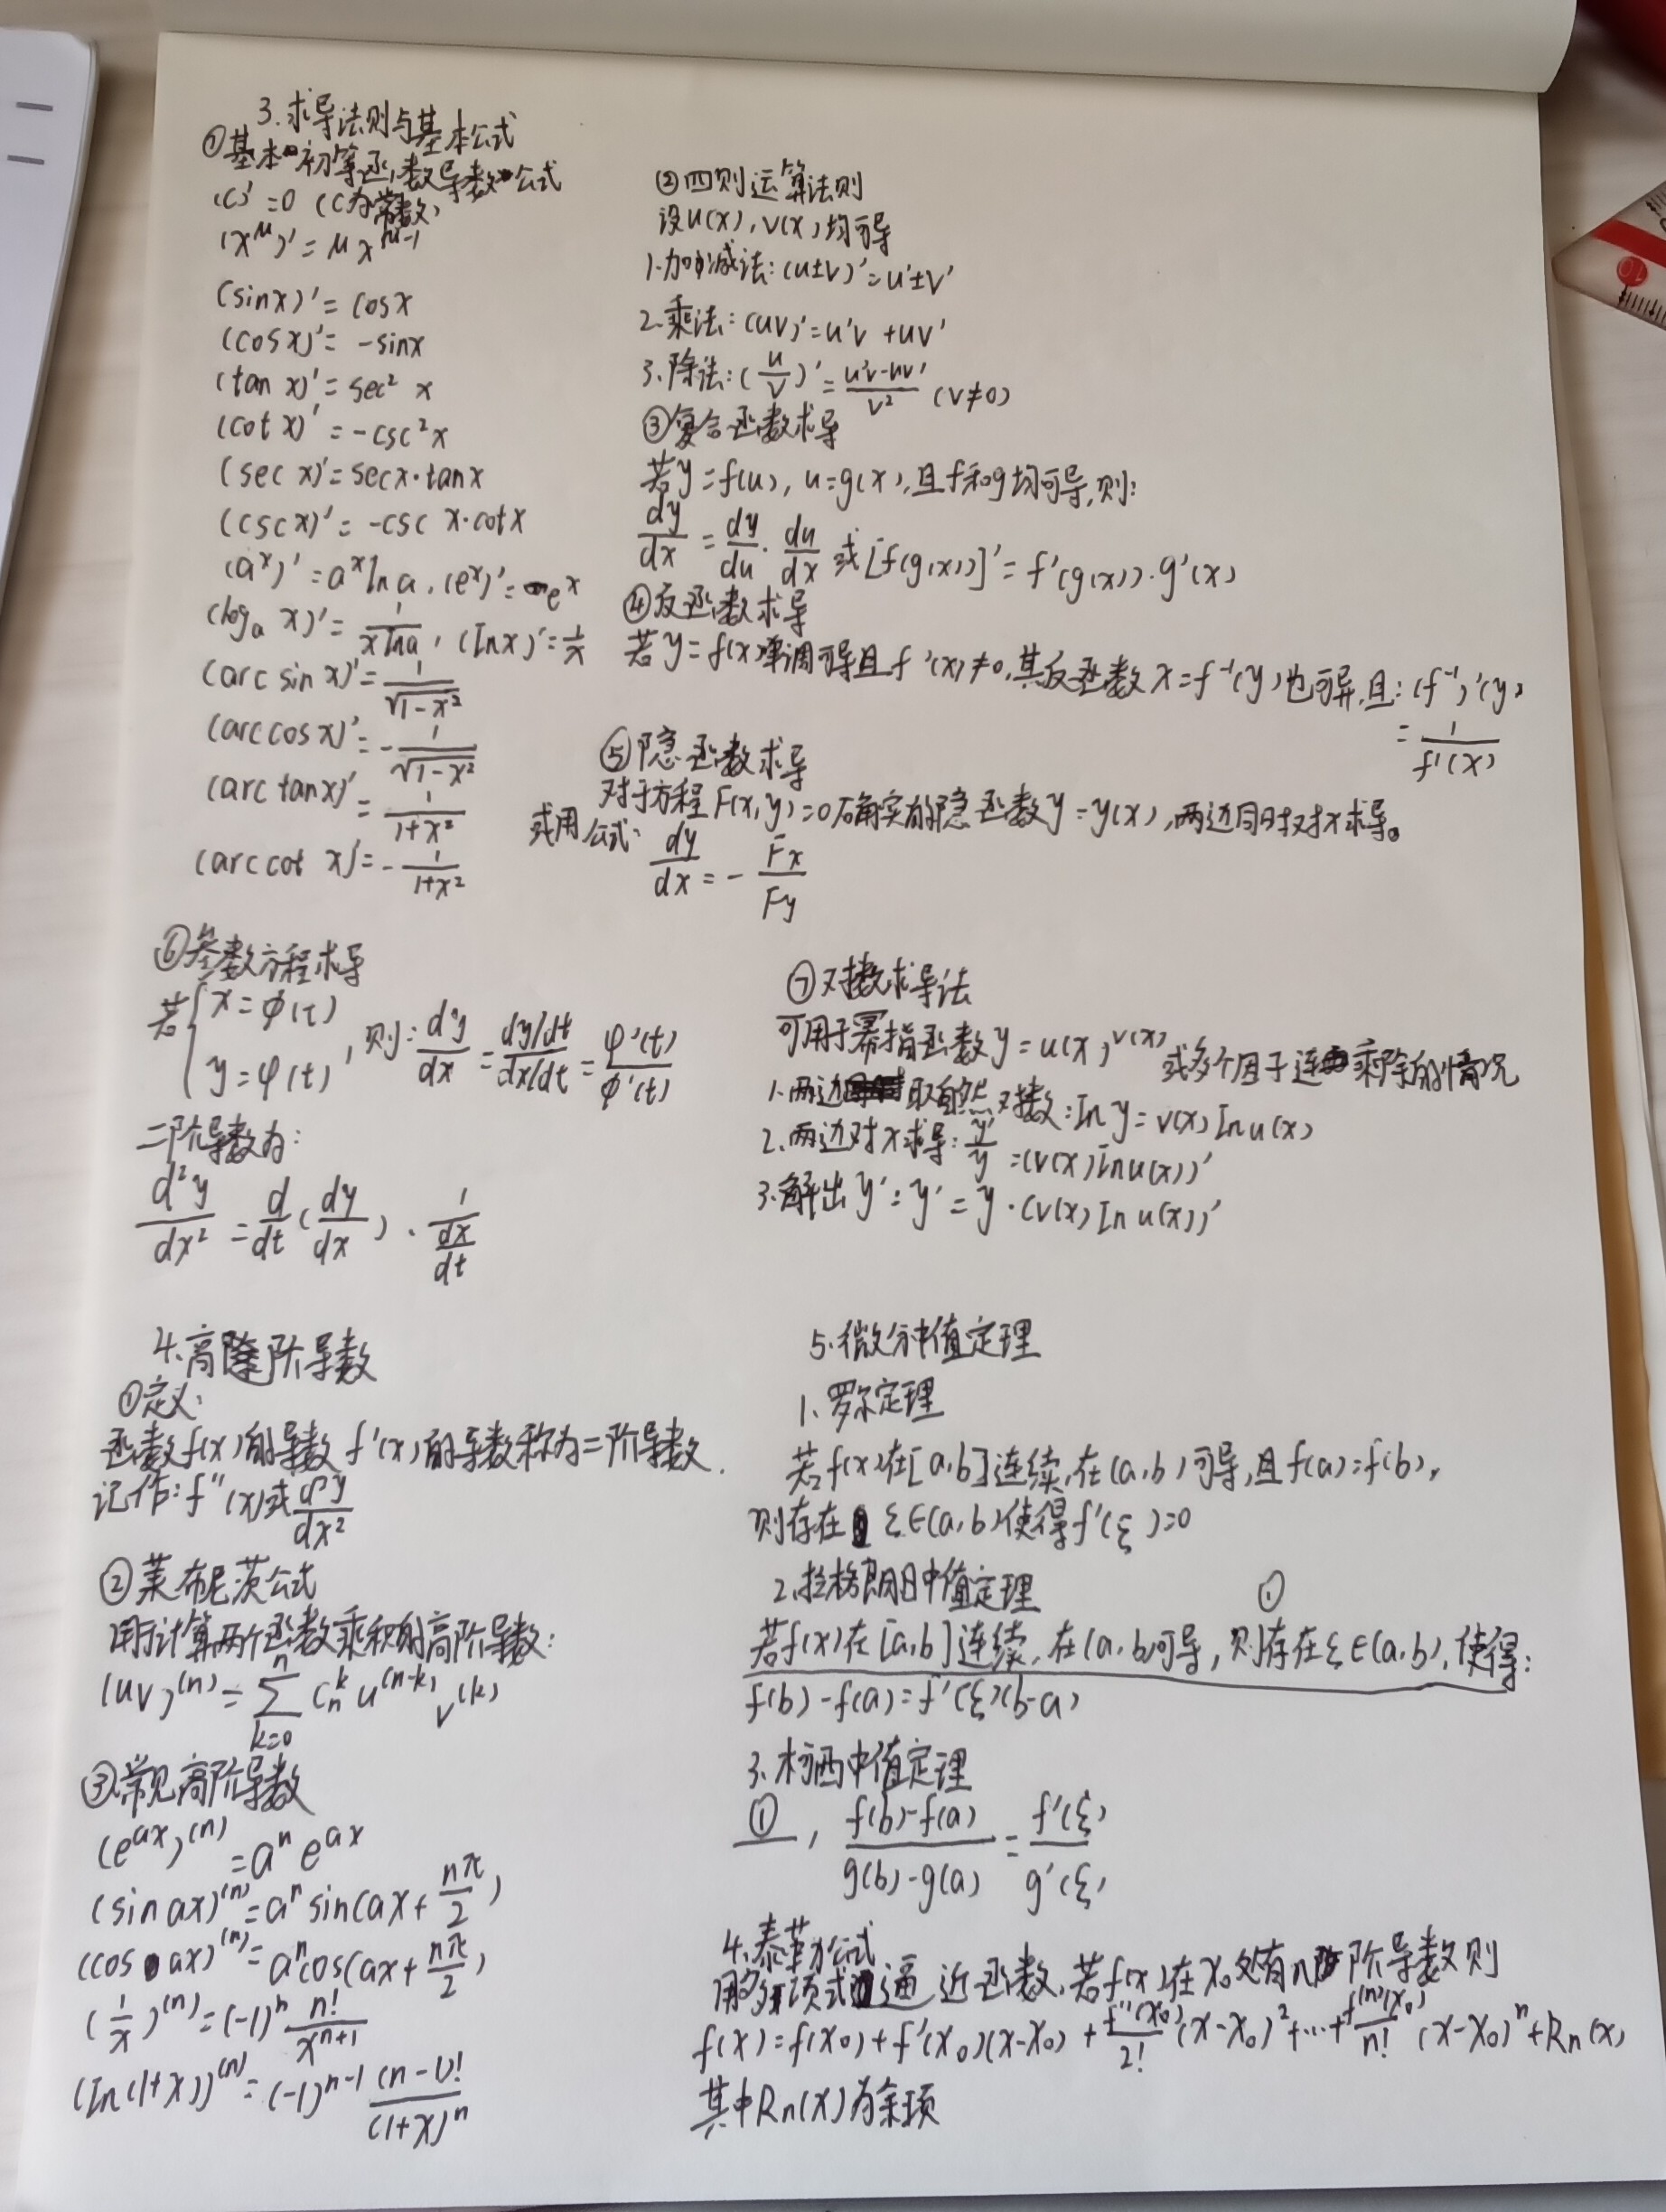 3.求导法则与基本公式
①基本初等函数导数公式
(C)'=0 (C为常数)
(x^μ)'=μx^{μ-1}
(sinx)'=cosx
(cosx)'=-sinx
(tan x)'=sec² x
(cot x)'=-csc²x
(sec x)'=secx·tanx
(cscx)'=-csc x·cotx
(a^x)'=a^x ln a, (e^x)'=e^x
(log_a x)'=1/(x ln a), (ln x)'=1/x
(arc sin x)'=1/√(1-x²)
(arc cos x)'=-1/√(1-x²)
(arc tanx)'=1/(1+x²)
(arc cot x)'=-1/(1+x²)
②四则运算法则
设u(x),v(x)均可导
1.加减法:(u±v)'=u'±v'
2.乘法:(uv)'=u'v+uv'
3.除法:(u/v)'=(u'v-uv')/v² (v≠0)
③复合函数求导
若y=f(u), u=g(x),且f和g均可导,则:
dy/dx=dy/du·du/dx 或[f(g(x))]'=f'(g(x))·g'(x)
④反函数求导
若y=f(x)单调可导且f'(x)≠0,其反函数x=f⁻¹(y)也可导,且:(f⁻¹)'(y)
=1/f'(x)
⑤隐函数求导
对于方程F(x,y)=0确实的隐函数y=y(x),两边同时对x求导。
或用公式: dy/dx=-Fx/Fy
⑥参数方程求导
若{x=φ(t)
y=ψ(t), 则:dy/dx=(dy/dt)/(dx/dt)=ψ'(t)/φ'(t)
二阶导数为:
d²y/dx²=d/dt(dy/dx)·1/(dx/dt)
⑦对数求导法
可用于幂指函数y=u(x)^{v(x)}或多个因子连乘除的情况
1.两边取自然对数:ln y=v(x)ln u(x)
2.两边对x求导:y'/y=(v(x)ln u(x))'
3.解出y':y'=y·(v(x)ln u(x))'
4.高阶导数
①定义:
函数f(x)的导数f'(x)的导数称为二阶导数.
记作:f''(x)或d²y/dx²
②莱布尼茨公式
用于计算两个函数乘积的高阶导数:
(uv)^{(n)}=∑_{k=0}^{n} C_n^k u^{(n-k)} v^{(k)}
③常见高阶导数
(e^{ax})^{(n)}=a^n e^{ax}
(sin ax)^{(n)}=a^n sin(ax+nπ/2)
(cos ax)^{(n)}=a^n cos(ax+nπ/2)
(1/x)^{(n)}=(-1)^n n!/x^{n+1}
(ln(1+x))^{(n)}=(-1)^{n-1} (n-1)!/(1+x)^n
5.微分中值定理
1.罗尔定理
若f(x)在[a,b]连续,在(a,b)可导,且f(a)=f(b),
则存在ξ∈(a,b)使得f'(ξ)=0
2.拉格朗日中值定理
①
若f(x)在[a,b]连续,在(a,b)可导,则存在ξ∈(a,b),使得:
f(b)-f(a)=f'(ξ)(b-a)
3.柯西中值定理
①, (f(b)-f(a))/(g(b)-g(a))=f'(ξ)/g'(ξ)
4.泰勒公式
用多项式逼近函数,若f(x)在x₀处有n阶导数则
f(x)=f(x₀)+f'(x₀)(x-x₀)+f''(x₀)/2!(x-x₀)²+…+f^{(n)}(x₀)/n!(x-x₀)^n+Rn(x)
其中Rn(x)为余项